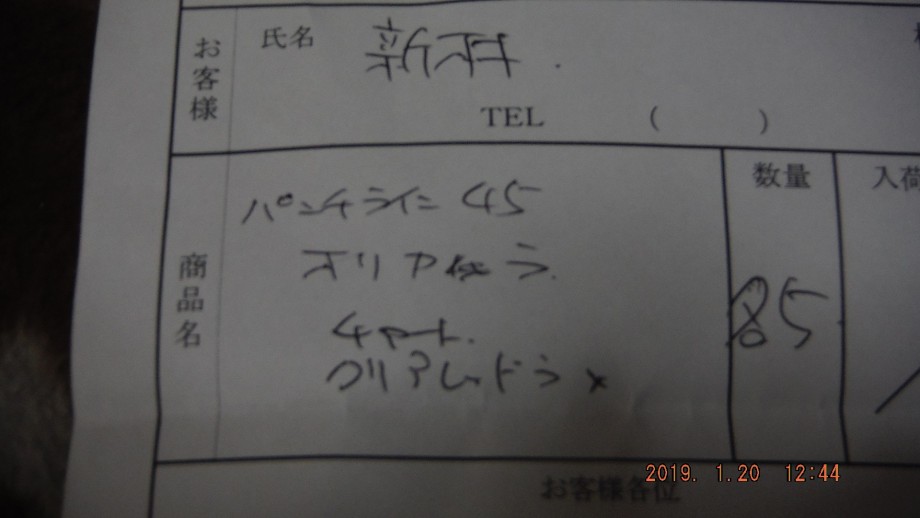 お客様
氏名
TEL ( )
商品名
パンチライン 45
オリカラ
チャート
クリアレッドラメ
数量
85
入荷
お客様各位
2019. 1.20 12:44